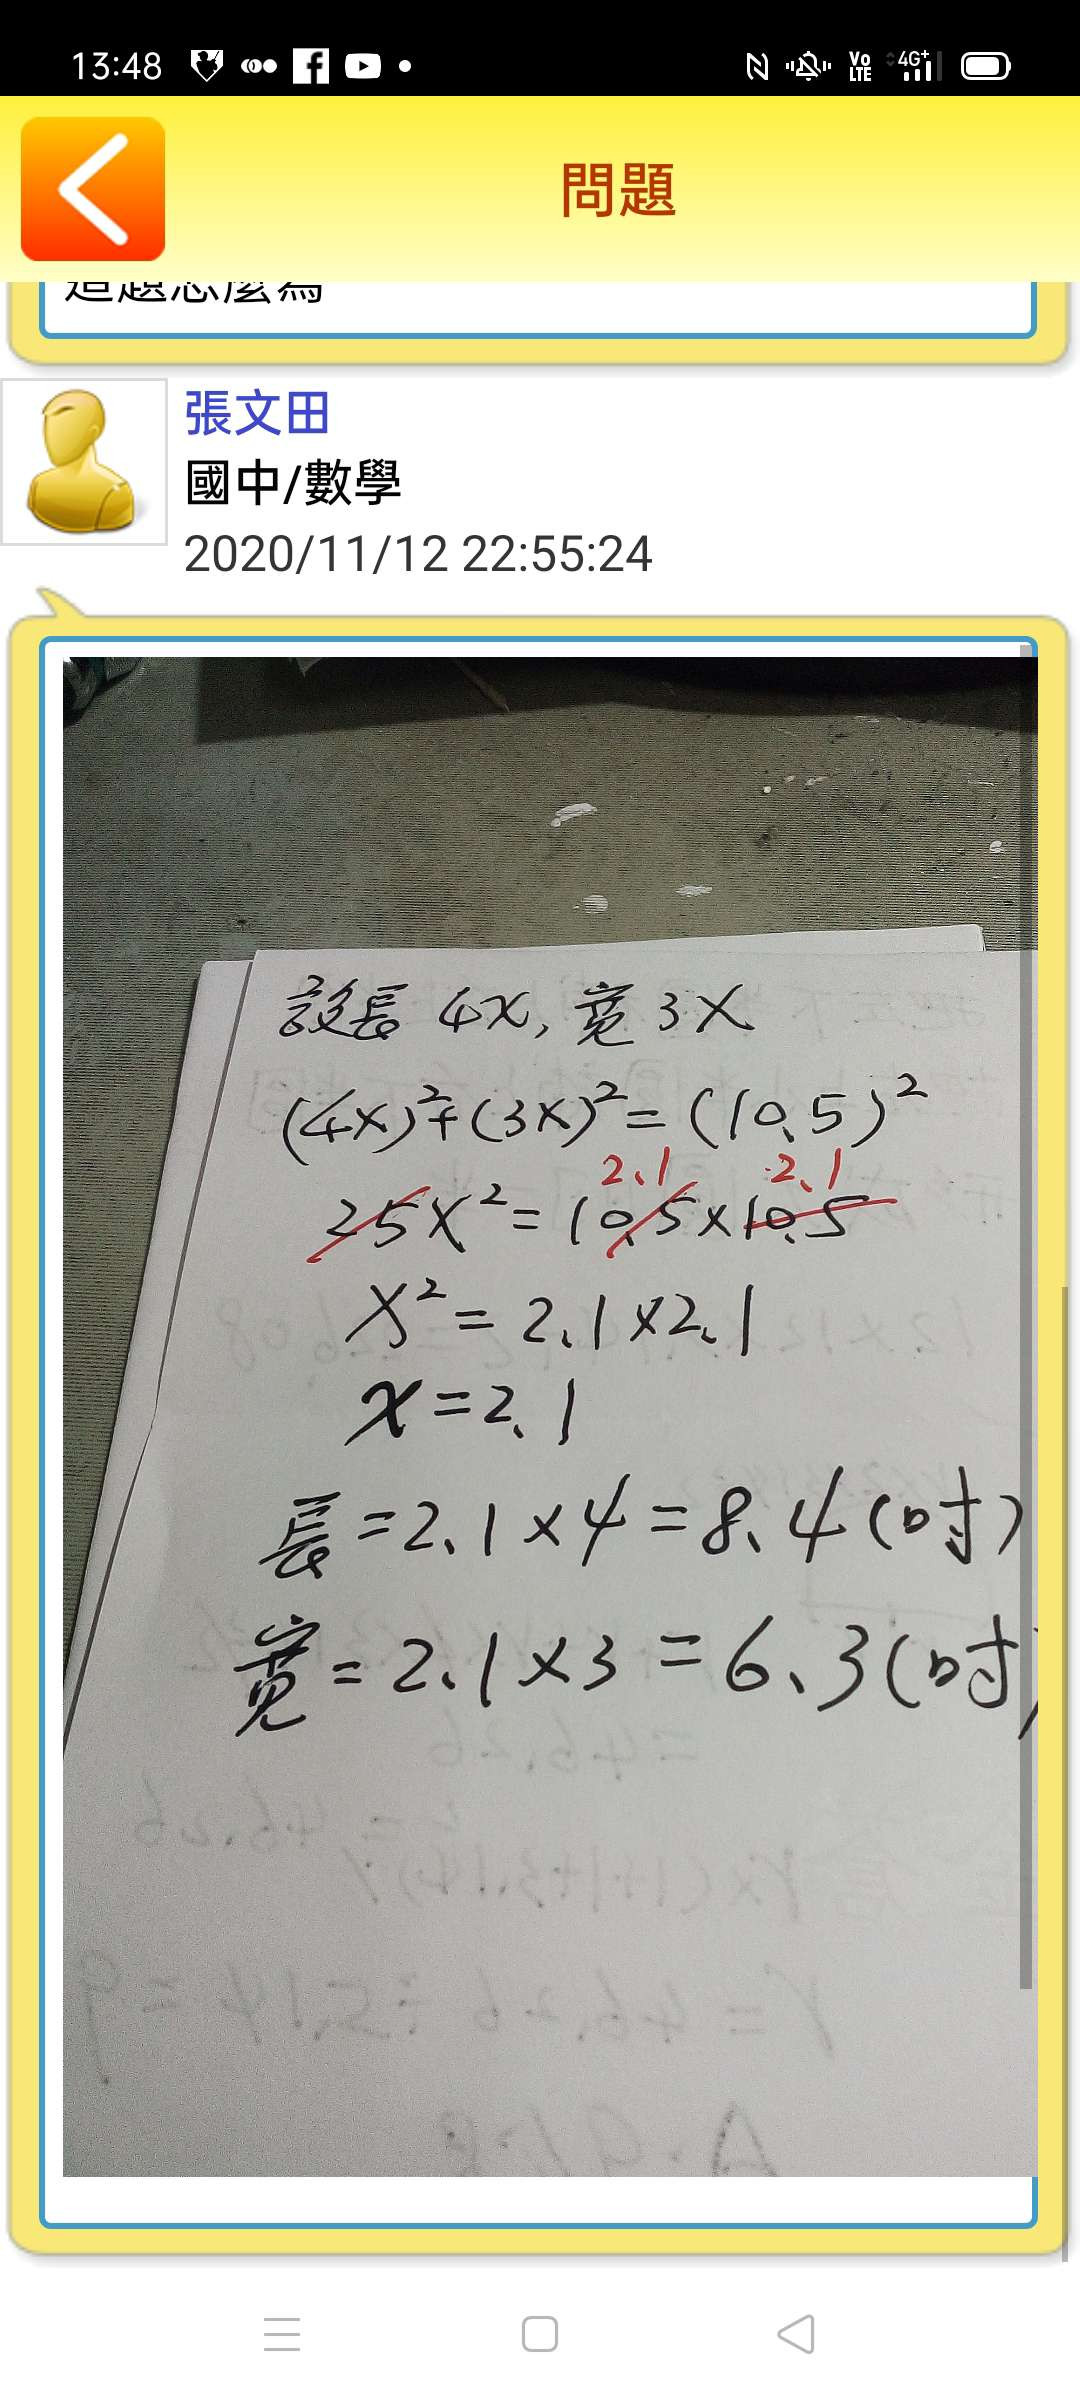 13:48
Vo LTE 4G+
問題
這題怎麼寫
張文田
國中/數學
2020/11/12 22:55:24
設長 4x, 寬 3x
(4x)²+(3x)²=(10.5)²
2.1 2.1
25x²=10.5×10.5
x²=2.1×2.1
x=2.1
長=2.1×4=8.4(吋)
寬=2.1×3=6.3(吋)